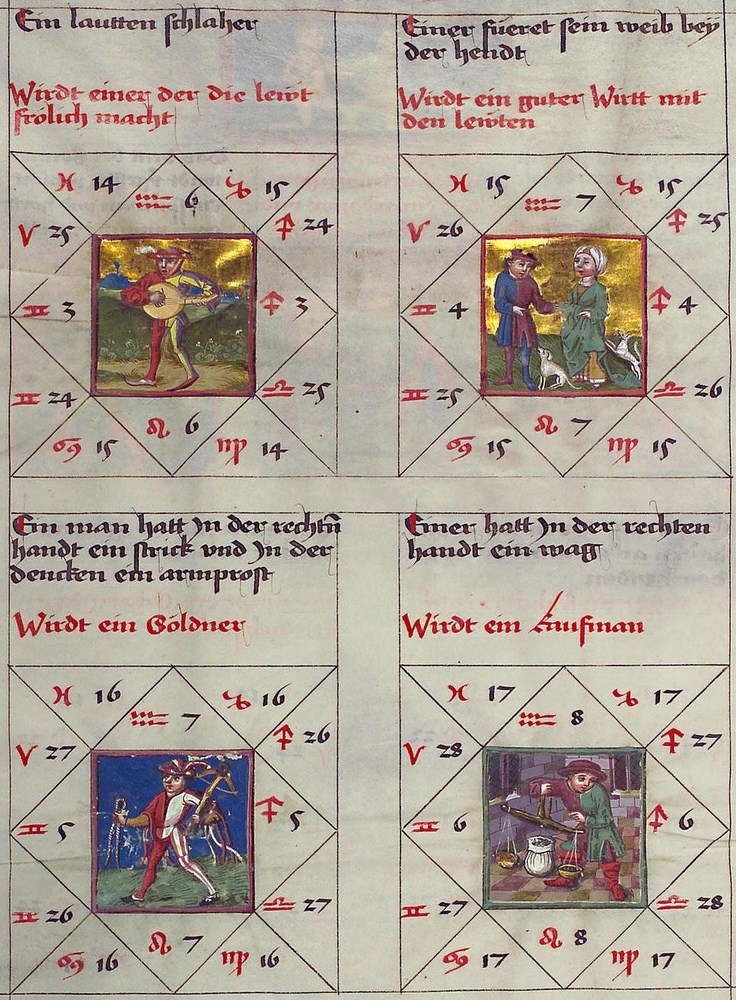 Ein lautten schlaher
Wirdt einer der die lewt
frölich macht
♓ 14
♒ 6
♑ 15
♐ 24
V 25
♊ 3
♐ 3
♊ 24
♎ 25
♋ 15
♌ 6
♍ 14
Einer füeret sein weib bey
der hendt
Wirdt ein guter Wirtt mit
den lewten
♓ 15
♒ 7
♑ 15
♐ 25
V 26
♊ 4
♐ 4
♊ 25
♎ 26
♋ 15
♌ 7
♍ 15
Ein man hatt Jn der rechtn̄
handt ein strick vnd Jn der
dencken ein armprost
Wirdt ein Söldner
♓ 16
♒ 7
♑ 16
♐ 26
V 27
♊ 5
♐ 5
♊ 26
♎ 27
♋ 16
♌ 7
♍ 16
Einer hatt Jn der rechten
handt ein wag
Wirdt ein kaufman
♓ 17
♒ 8
♑ 17
♐ 27
V 28
♊ 6
♐ 6
♊ 27
♎ 28
♋ 17
♌ 8
♍ 17